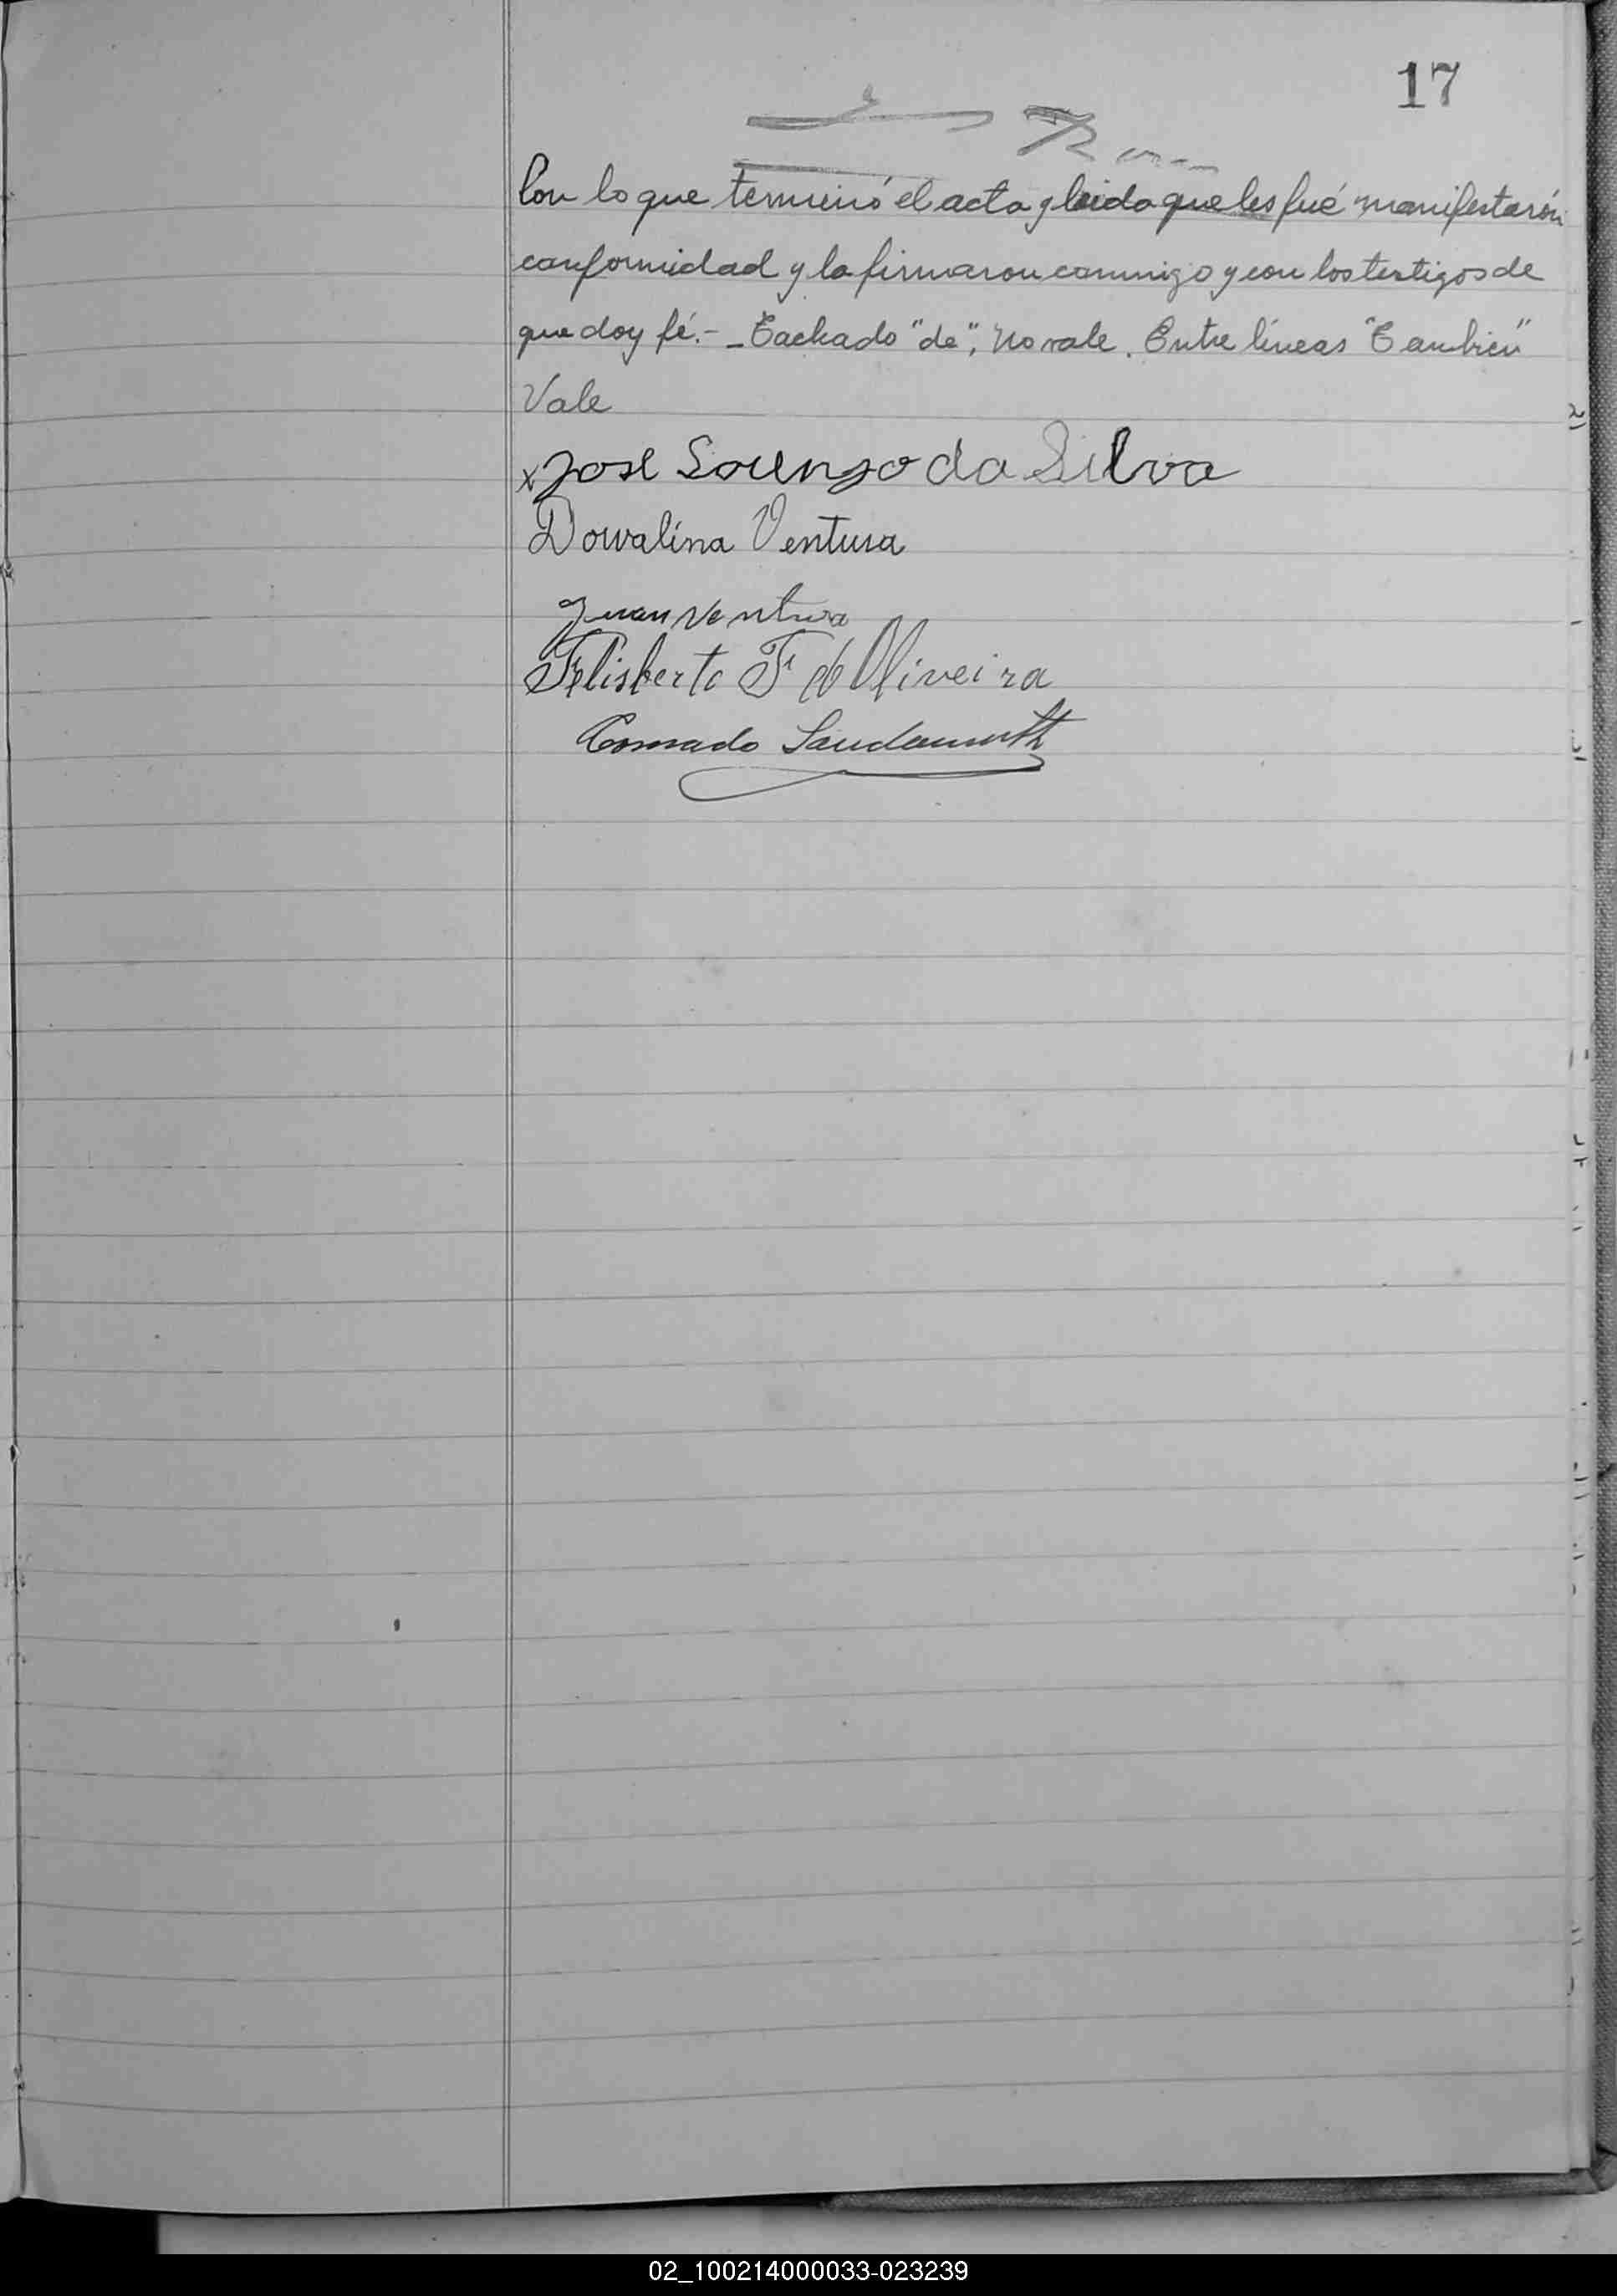 17
Con lo que terminó el acta y leida que les fué manifestarón
conformidad y la firmaron conmigo y con los testigos de
que doy fé.- - Tachado "de", No vale. Entre líneas "Tambien"
Vale
x Jose Lourenso da Silva
Dorvalina Ventura
Juan Ventura
Felisberto F de Oliveira
Conrado
02_100214000033-023239